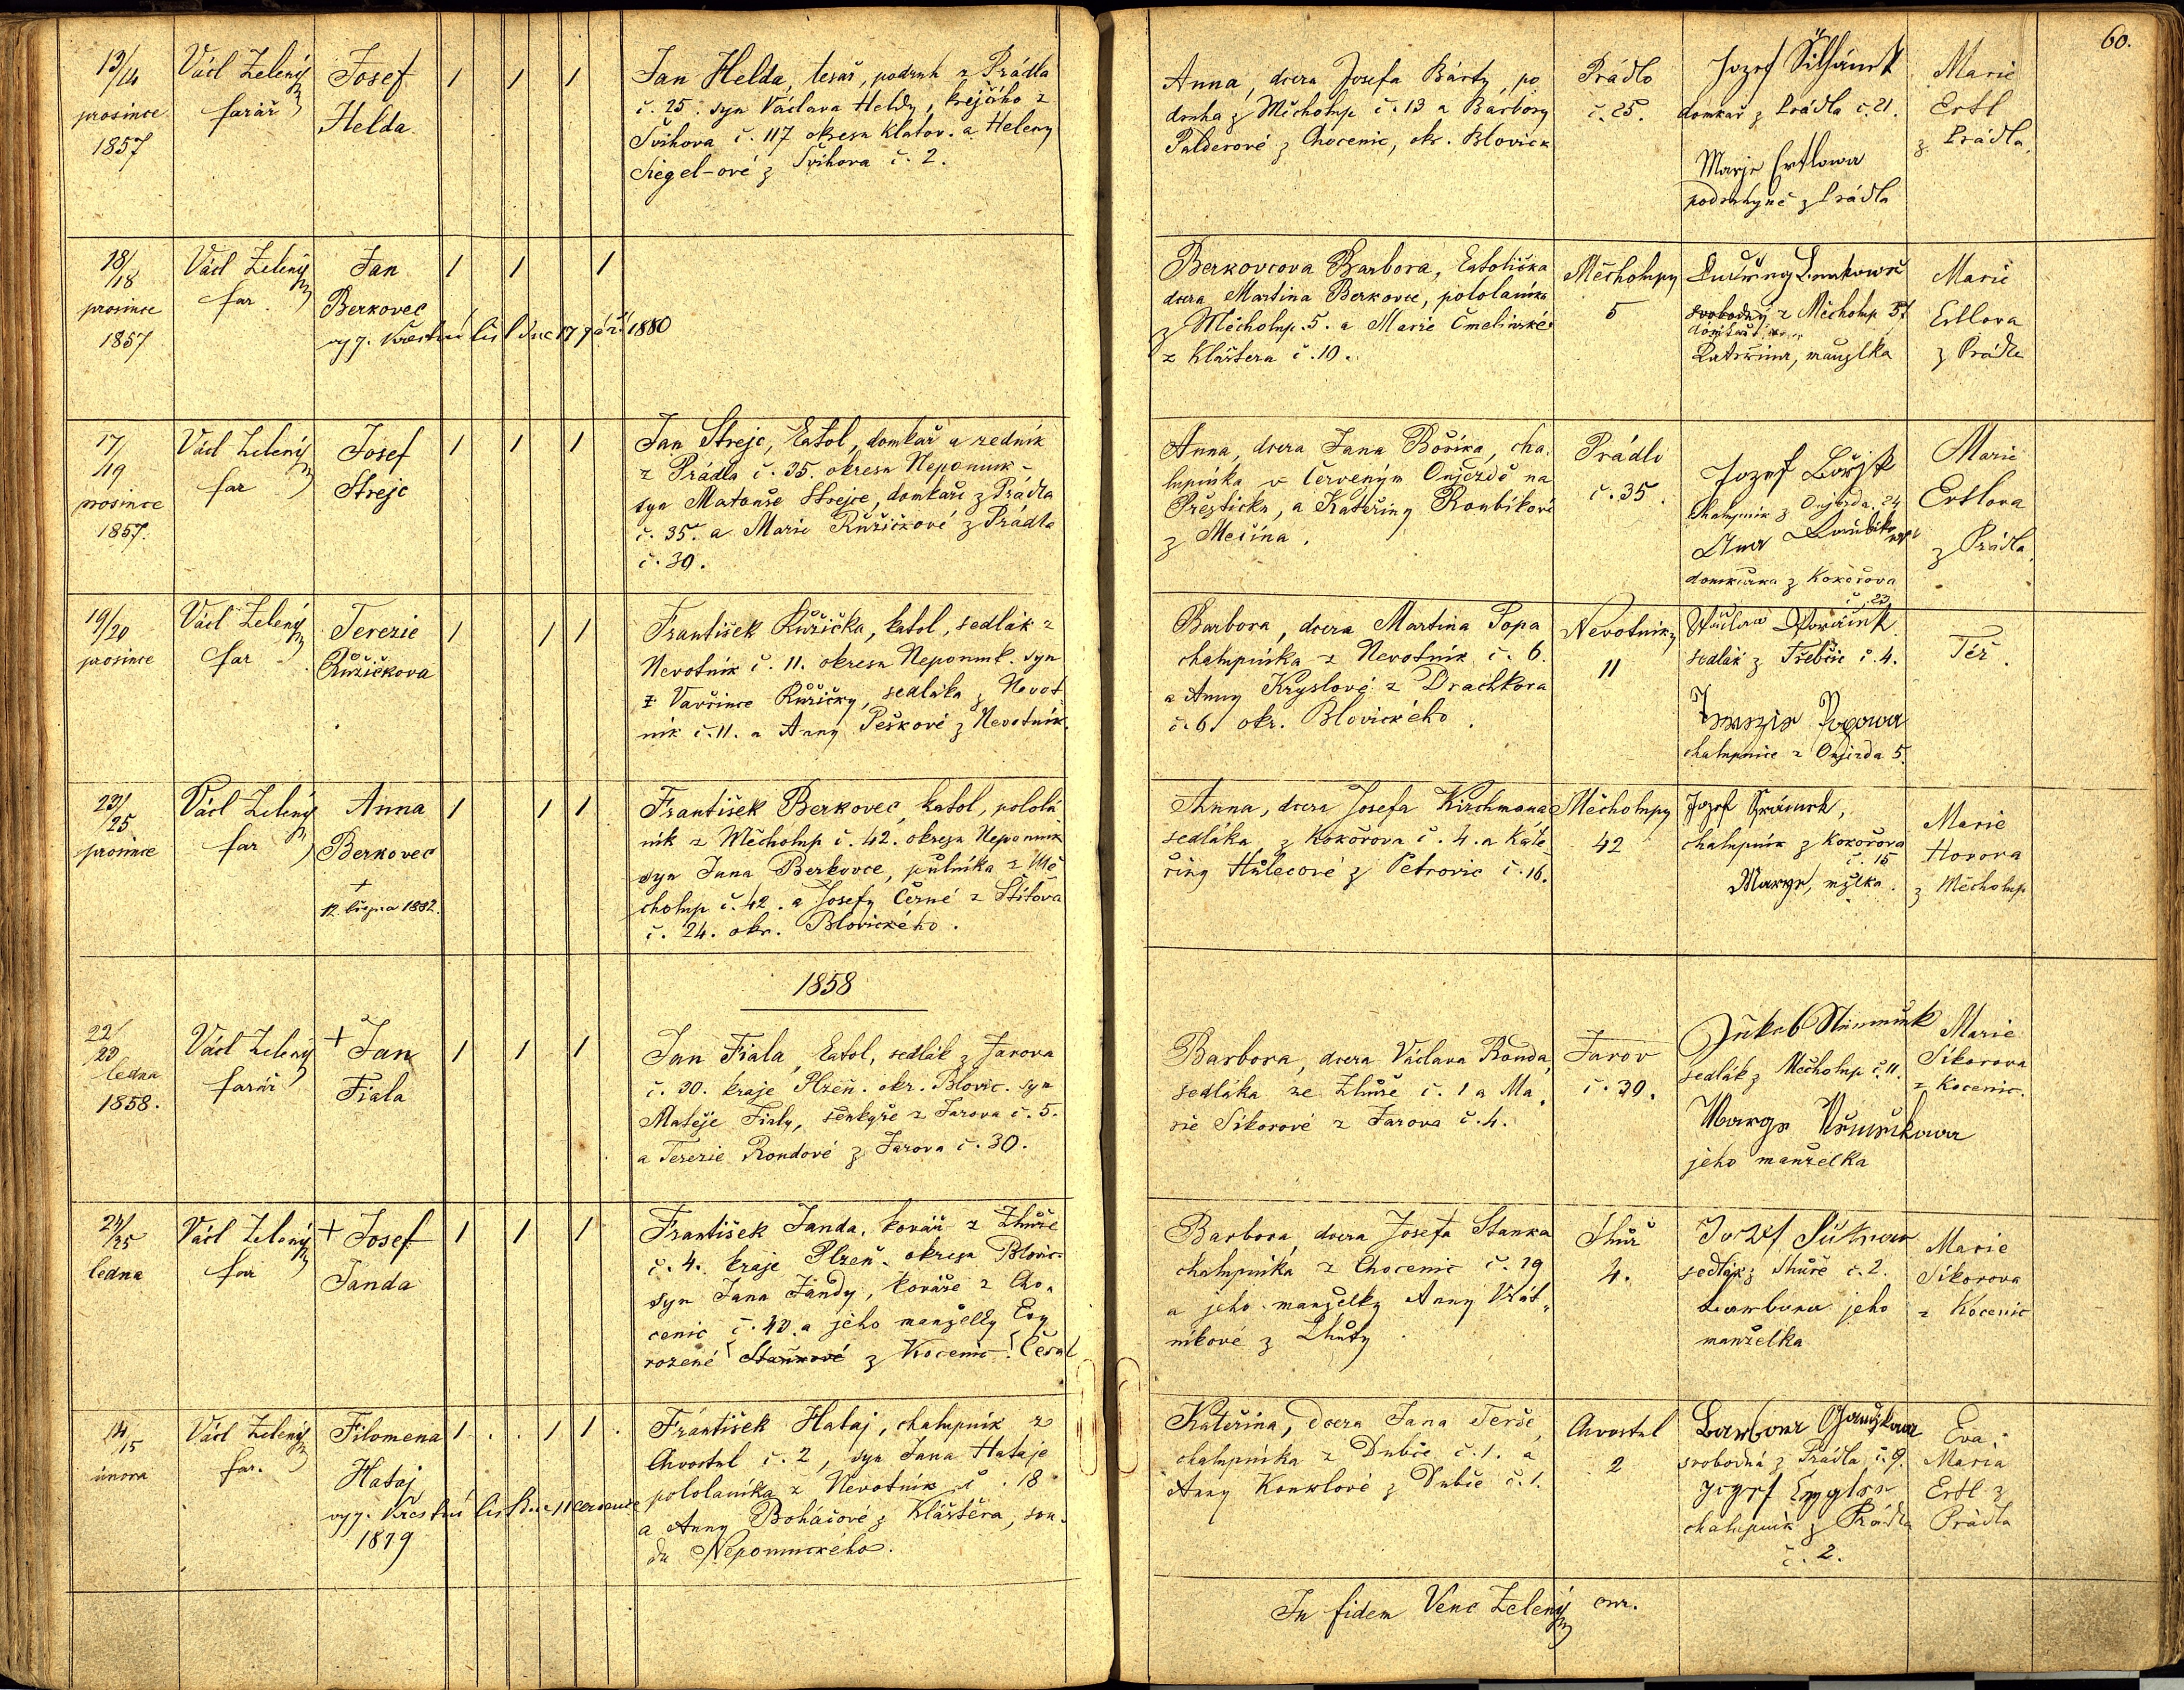 60.
13/14
prosince
1857
Václ Zelený
farář
Josef
Helda
1 1 1
Jan Helda, tesař, podruh z Prádla
č. 25. syn Václava Heldy, krejčího z
Švihova č. 117 okresu Klatov. a Heleny
Siegel-ové z Švihova č. 2.
Anna, dcera Josefa Bárty, po
druha z Měcholup č. 13 a Barbory
Palderové z Chocenic, okr. Blovick
Prádlo
č. 25.
Jozef
domkař z Prádla č. 21.
Marye Ertlowa
podruhyně z Prádla
Marie
Ertl
z Prádla.
18/18
prosince
1857
Václ Zelený
far
Jan
Berkovec
vyj. křestní list dne 17 září 1880
1 1 1
Berkovcova Barbora, katolička
dcera Martina Berkovce, pololaníka
z Měcholup. 5. a Marie Čmelínské
z Kláštera č. 10.
Měcholupy
5
svobodný z Měcholup 5
Kateřina, manželka
Marie
Ertlova
z Prádla
17/19
prosince
1857.
Václ Zelený
far
Josef
Strejc
1 1 1
Jan Strejc, katol, domkář a zedník
z Prádla č. 35. okresu Nepomuk -
syn Matouše Strejce, domkaře z Prádla
č. 35. a Marie Růžičkové z Prádla
č. 30.
Anna, dcera Jana Boříka, cha
lupníka v Červeným Oujezdě na
Přešticku, a Kateřiny Roubíkové
z Mečína.
Prádlo
č. 35.
Jozef Bořjk
chalupník z Oujezda 24
Ana
domkářka z Kokořova
č. 23
Marie
Ertlova
z Prádla.
19/20
prosince
Václ Zelený
far
Terezie
Růžičkova
1 1 1
František Růžička, katol, sedlák z
Nevotník č. 11. okresu Nepomuk. syn
Vavřince Růžičky, sedláka z Nevot
ník č. 11. a Anny Peškové z Nevotník.
Barbora, dcera Martina Popa
chalupníka z Nevotník č. 6.
a Anny Kryslové z Drachkova
č. 6. okr. Blovického.
Nevotníky
11
sedlák z Třebčic č. 4.
Popowa
chalupnice z Oujezda 5.
Též.
23/25
prosince
Václ Zelený
far
Anna
Berkovec
+
12. března 1882.
1 1 1
František Berkovec, katol, pololá
ník z Měcholup č. 42. okresu Nepomuk
syn Jana Berkovce, půlníka z Mě
cholup č. 42. a Josefy Černé z Štítova
č. 24. okr. Blovického.
Anna, dcera Josefa Kirchmana
sedláka z Kokořova č. 4. a Kate
řiny Hůlecové z Petrovic č. 16.
Měcholupy
42
Jozef
chalupník z Kokořova
č. 15
Marye, mžlka.
Marie
Hovora
z Měcholup
1858
22/23
ledna
1858.
Václ Zelený
farář
+ Jan
Fiala
1 1 1
Jan Fiala, katol, sedlák z Jarova
č. 30. kraje Plzeň. okr. Blovic. syn
Matěje Fialy, šenkýře z Jarova č. 5.
a Terezie Rondové z Jarova č. 30.
Barbora, dcera Václava Ronda,
sedláka ze Zhůře č. 1 a Ma
rie Síkorové z Jarova č. 4.
Jarov
č. 30.
Jakob
sedlák z Měcholup č. 11.
Marye
jeho manželka
Marie
Síkorova
z Kocenic.
24/25
ledna
Václ Zelený
far
+ Josef
Janda
1 1 1
František Janda, kovář z Zhůře
č. 4. kraje Plzeň. okresu Blovic
syn Jana Jandy, kováře z Cho
cenic č. 40. a jeho manželky Evy
rozené Staňkové z Kocenic.
Barbora, dcera Josefa Stanka
chalupníka z Chocenic č. 29
a jeho manželky Anny Vrát
níkové z Lhůty.
Zhůř
4.
Jozef
sedlák z Zhůře č. 2.
Barbora jeho
manželka
Marie
Síkorova
z Kocenic
14/15
února
Václ Zelený
far.
Filomena
Hataj
vyj. křestní list dne 11 července
1879
1 1 1
František Hataj, chalupník z
Chvostul č. 2, syn Jana Hataje
pololaníka z Nevotník č. 18
a Anny Boháčové z Kláštera, sou
du Nepomuckého.
Kateřina, dcera Jana Terče,
chalupníka z Dubče č. 1. a
Anny z Dubče č. 1.
Chvostul
2
Barbora
svobodná z Prádla č. 9.
Jozef
chalupník z Prádla
č. 2.
Eva
Maria
Ertl z
Prádla
In fidem Venc Zelený cur.